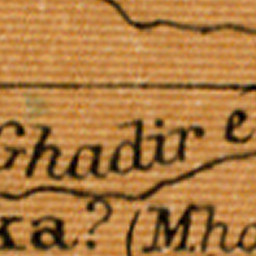 Ghadir e
ka? (M.ho